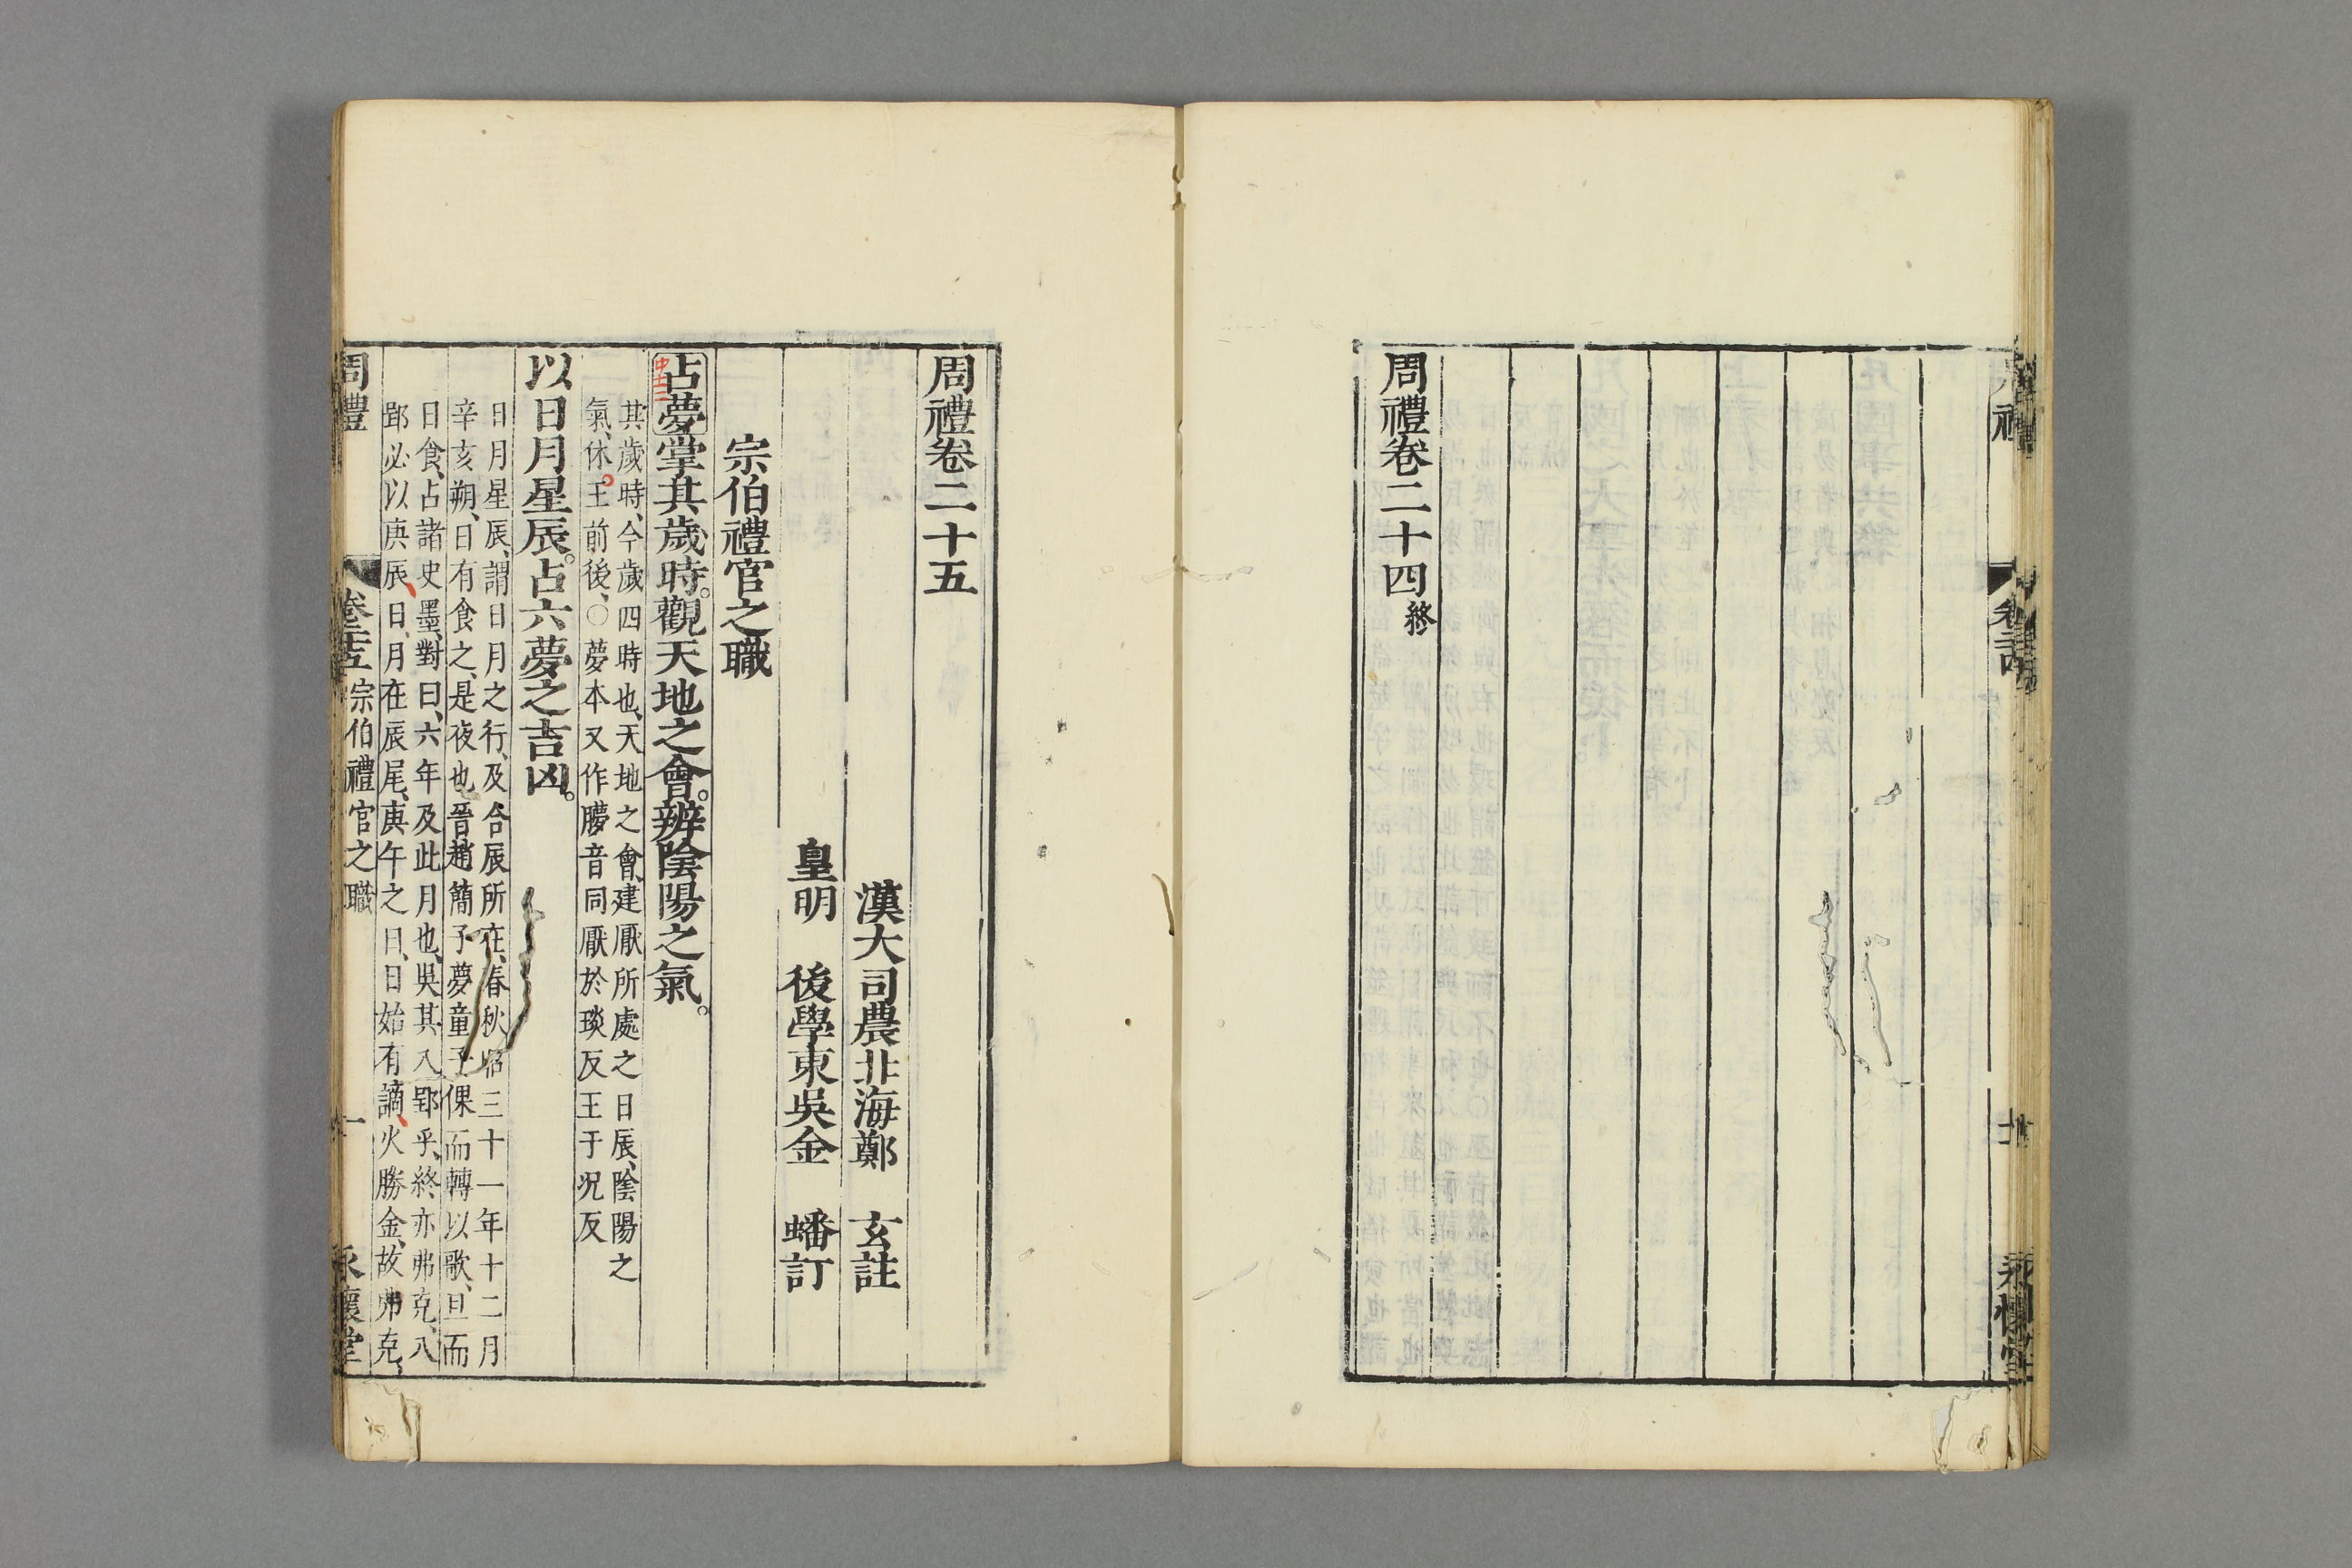 周禮卷二十四終
周禮卷二十五
漢大司農北海鄭　玄註
皇明　後學東吳金　蟠訂
宗伯禮官之職
占夢掌其歲時。觀天地之會。辨陰陽之氣。
其歲時、今歲四時也、天地之會、建厭所處之日辰、陰陽之
氣、休王前後、○夢本又作㝱音同厭於琰反王于況反
以日月星辰。占六夢之吉凶。
日月星辰、謂日月之行、及合辰所在、春秋昭三十一年十二月
辛亥朔、日有食之、是夜也晉趙簡子夢童子倮而轉以歌、旦而
日食、占諸史墨、對曰、六年及此月也、吳其入郢乎、終亦弗克、入
郢必以庚辰、日月在辰尾、庚午之日、日始有謫、火勝金、故弗克、
周禮　卷二十五　宗伯禮官之職　一　永懷堂